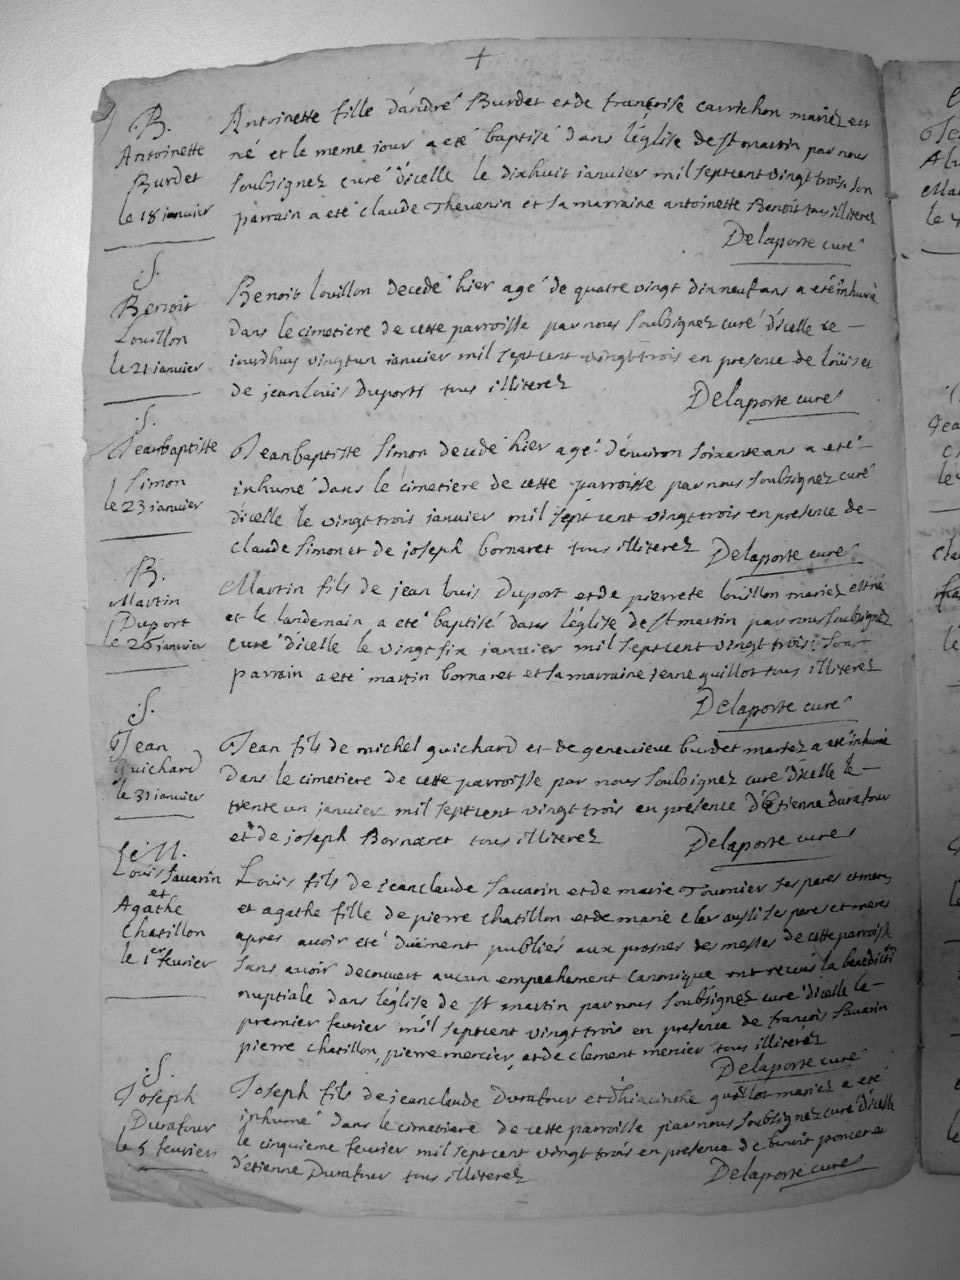 +
B.
Antoinette
Burdet
le 18 janvier
Antoinette fille d'andré Burdet et de françoise carrichon mariez est
né et le meme jour a eté baptisé dans l'église de st martin par nous
soubsignez curé d'icelle le dixhuit janvier mil sept cent vingt trois son
parrain a eté claude Thevenin et sa marraine antoinette Benoit tous illiterez
Delaporte curé
S.
Benoit
Louillon
le 21 janvier
Benoit louillon decedé hier agé de quatre vingt dix neuf ans a eté inhumé
dans le cimetiere de cette parroisse par nous soubsignez curé d'icelle ce —
jourdhuy vingt un janvier mil sept cent vingt trois en presence de loüis et
de jean loüis Duports tous illiterez
Delaporte curé
S.
Jean baptiste
Simon
le 23 janvier
Jean baptiste Simon decedé hier agé d'environ soixante ans a eté —
inhumé dans le cimetiere de cette parroisse par nous soubsignez curé
d'icelle le vingt trois janvier mil sept cent vingt trois en presence de —
claude Simon et de joseph bornaret tous illiterez Delaporte curé
B.
Martin
Duport
le 26 janvier
Martin fils de jean louis Duport et de pierrete louillon mariez est né
et le landemain a eté baptisé dans l'église de st martin par nous soubsignez
curé d'icelle le vingt six janvier mil sept cent vingt trois son —
parrain a eté martin bornaret et sa marraine jeane guillot tous illiterez
Delaporte curé
S.
Jean
guichard
le 31 janvier
Jean fils de michel guichard et de genevieve burdet mariez a eté inhumé
dans le cimetiere de cette parroisse par nous soubsignez curé d'icelle le —
trente un janvier mil sept cent vingt trois en presence d'Etienne durafour
et de joseph Bornaret tous illiterez Delaporte curé
Louis Savarin
et
Agathe
Chatillon
le 1er fevrier
Louis fils de jean claude Savarin et de marie Tournier ses peres et meres
et agathe fille de pierre chatillon et de marie cler aussi ses peres et meres
apres avoir eté duëment publiés aux prosnes des messes de cette parroisse
sans avoir decouvert aucun empechement canonique ont reçeus la benedicti
nuptiale dans l'église de st martin par nous soubsignez curé d'icelle le —
premier fevrier mil sept cent vingt trois en presence de françois Savarin
pierre chatillon, pierre mercier, et de clement mercier tous illiterez
Delaporte curé
S.
Joseph
Durafour
le 5 fevrier
Joseph fils de jean claude Durafour et d'hiacinthe guillot mariez a eté
inhumé dans le cimetiere de cette parroisse par nous soubsignez curé d'icelle
le cinquieme fevrier mil sept cent vingt trois en presence de benoit poncet et
d'etienne Durafour tous illiterez Delaporte curé